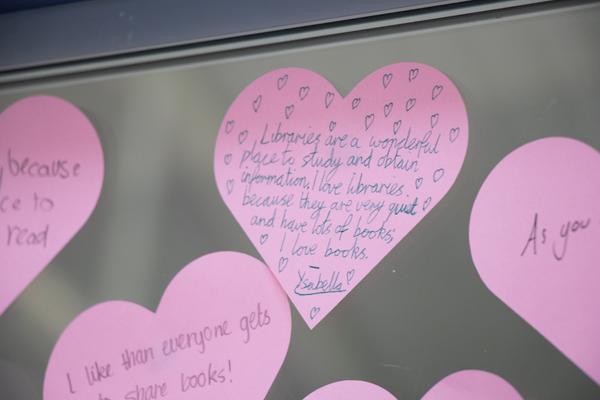 because
ce to
read
Libraries are a wonderful
place to study and obtain
information, I love libraries
because they are very quiet
and have lots of books,
I love books.
Ysabella
As you
I like than everyone gets
to share books!